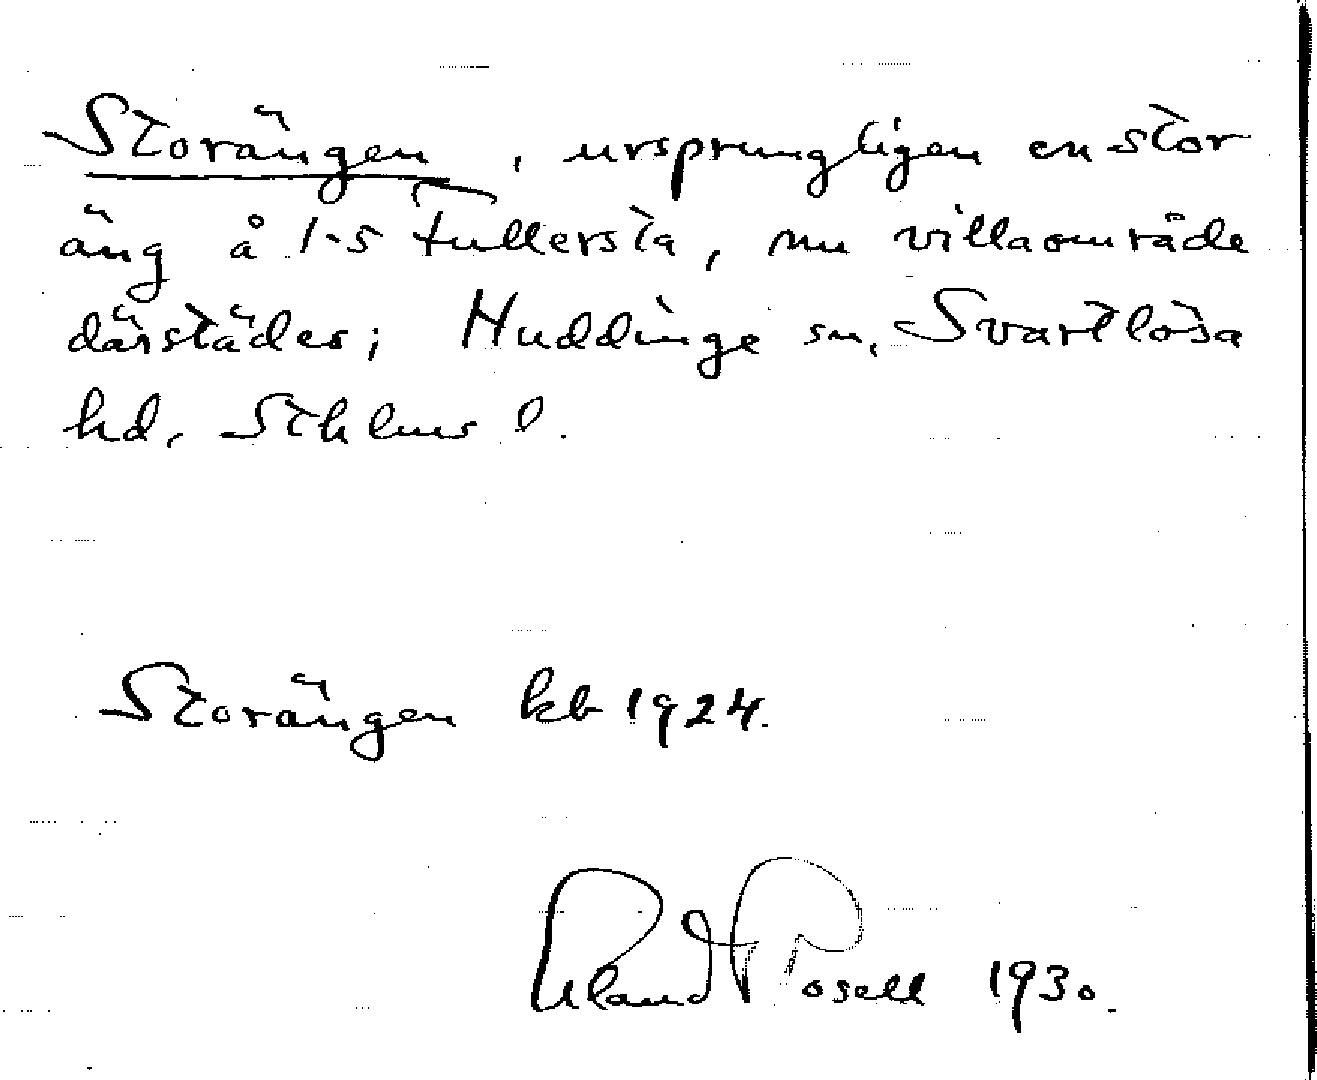 Storängen, ursprungligen en stor
äng å 1-5 Fullersta, nu villaområde
därstädes; Huddinge sn, Svartlösa
hd, Sthlms l.
Storängen kb 1924.
Erland Rosell 1930.